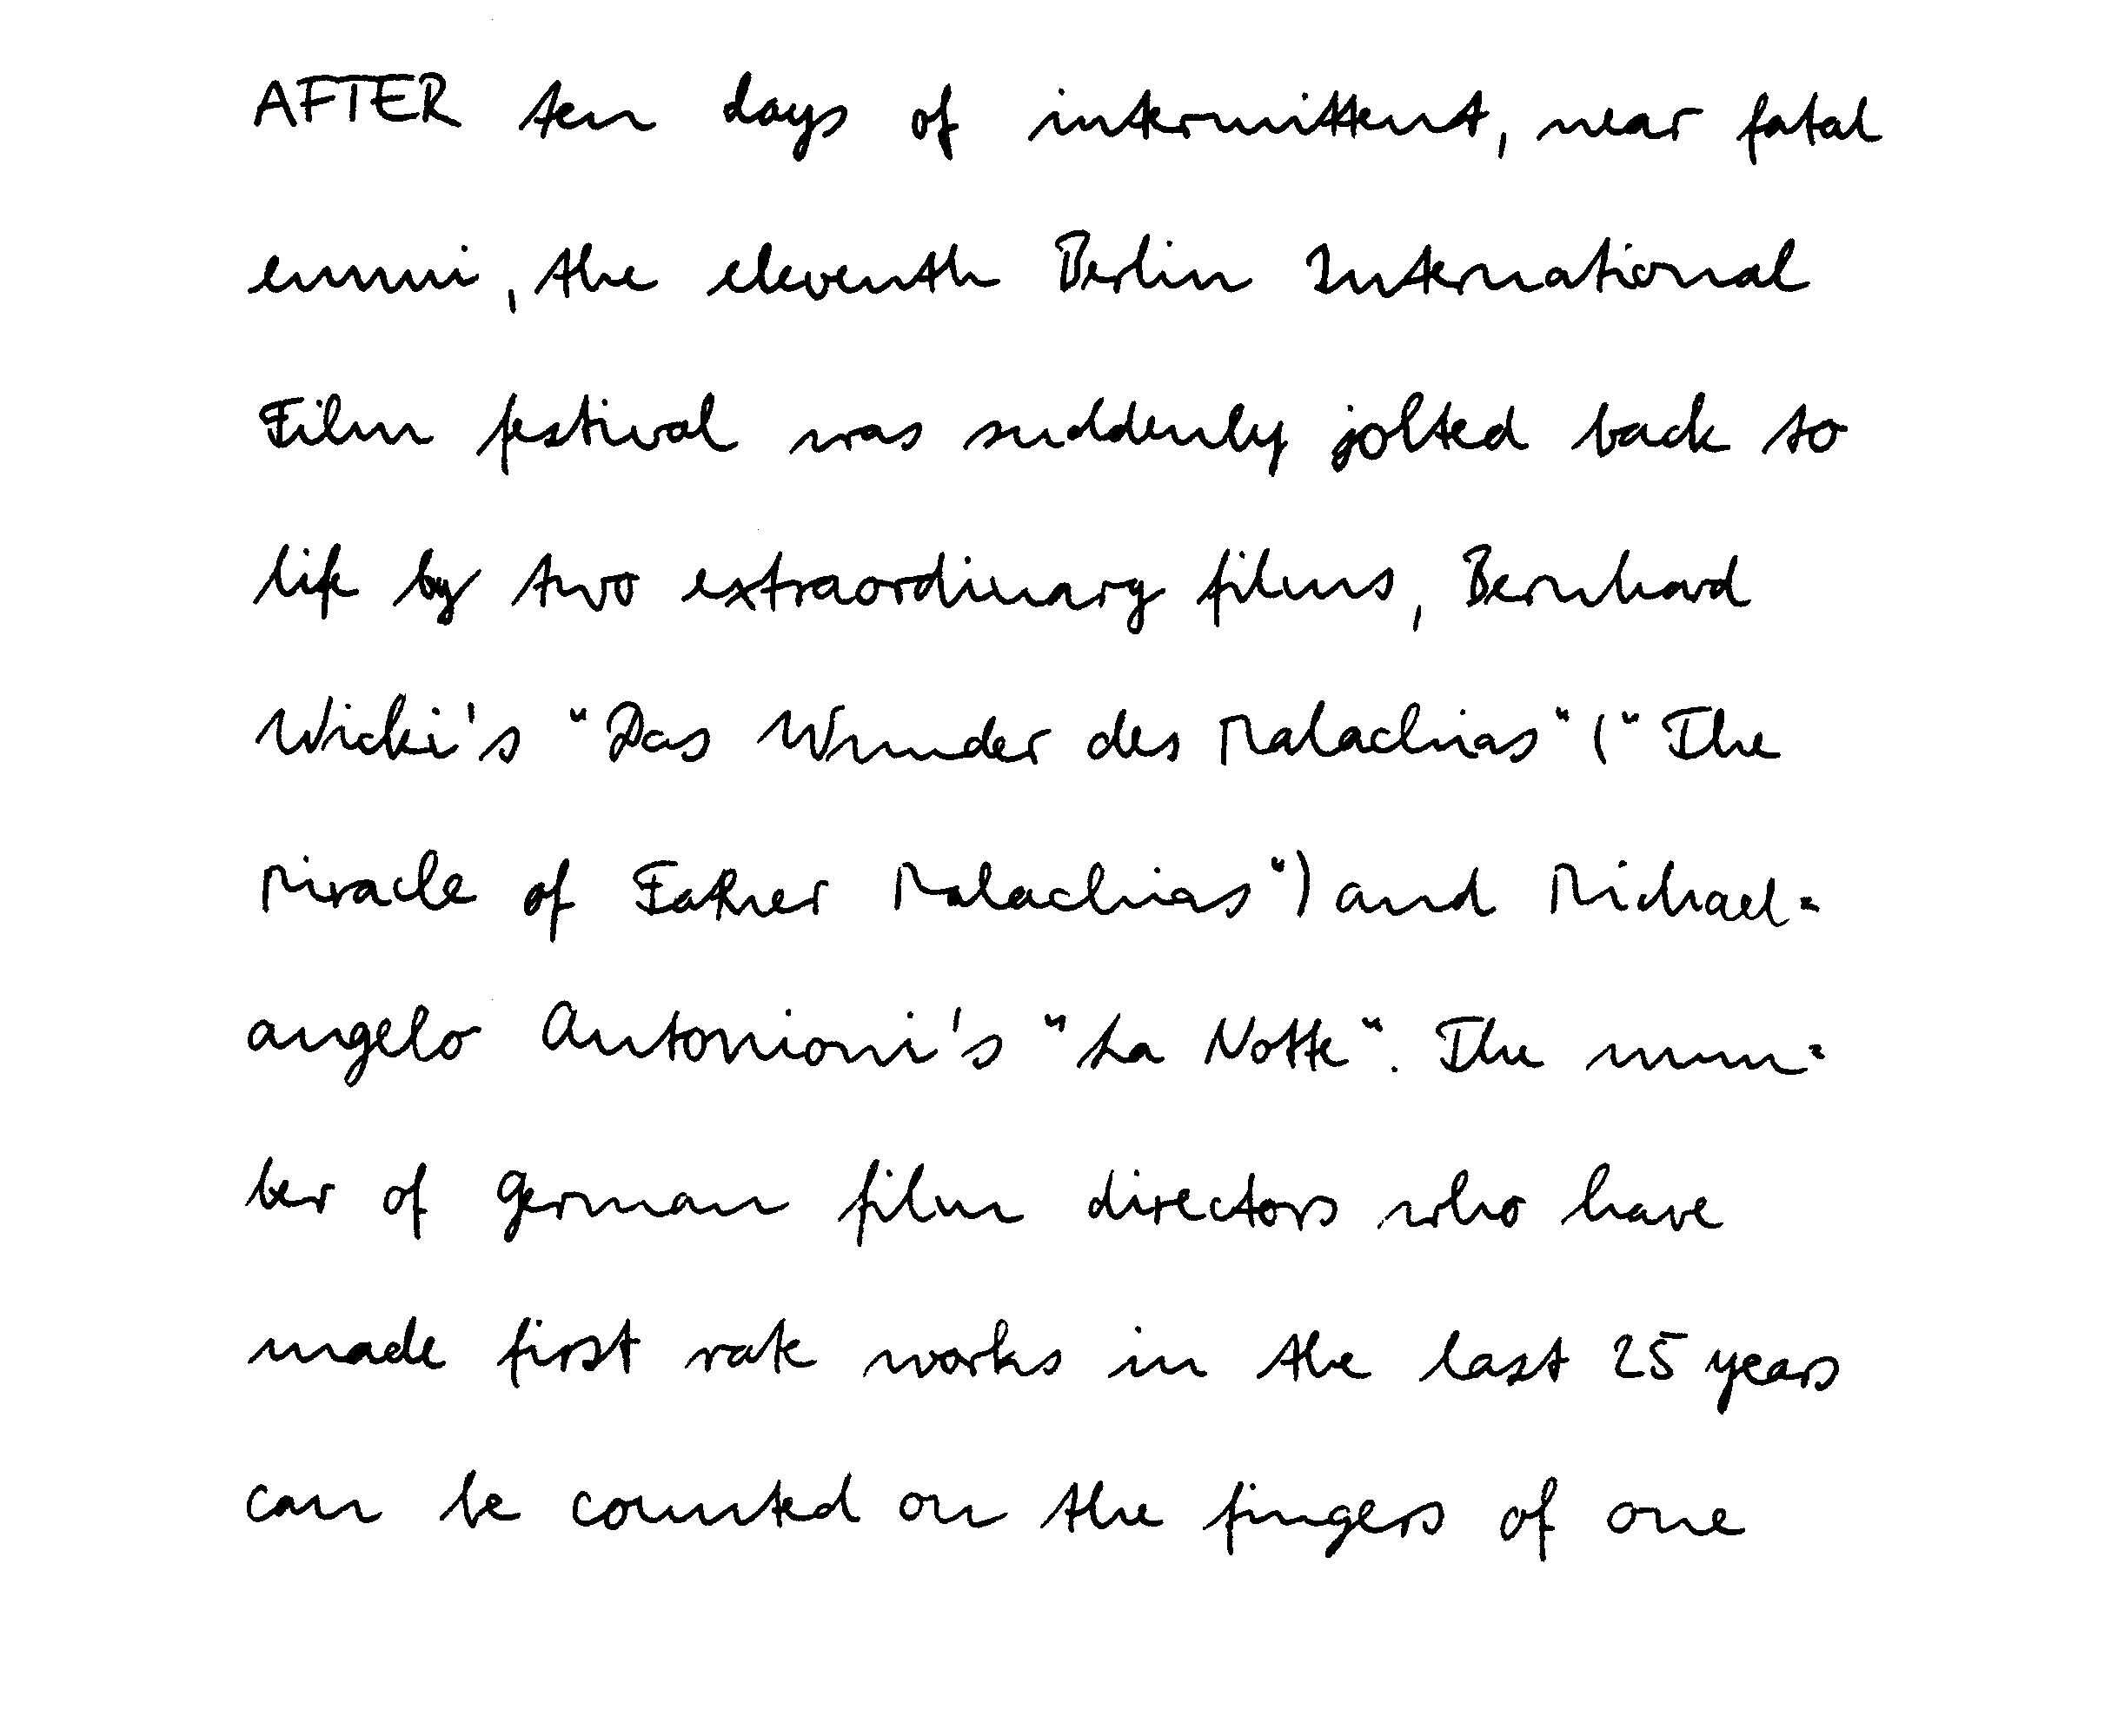 AFTER ten days of intermittent, near fatal
ennui, the eleventh Berlin International
Film festival was suddenly jolted back to
life by two extraordinary films, Bernhard
Wicki's "Das Wunder des Malachias" ("The
Miracle of Father Malachias") and Michael-
angelo Antonioni's "La Notte". The num-
ber of German film directors who have
made first rate works in the last 25 years
can be counted on the fingers of one